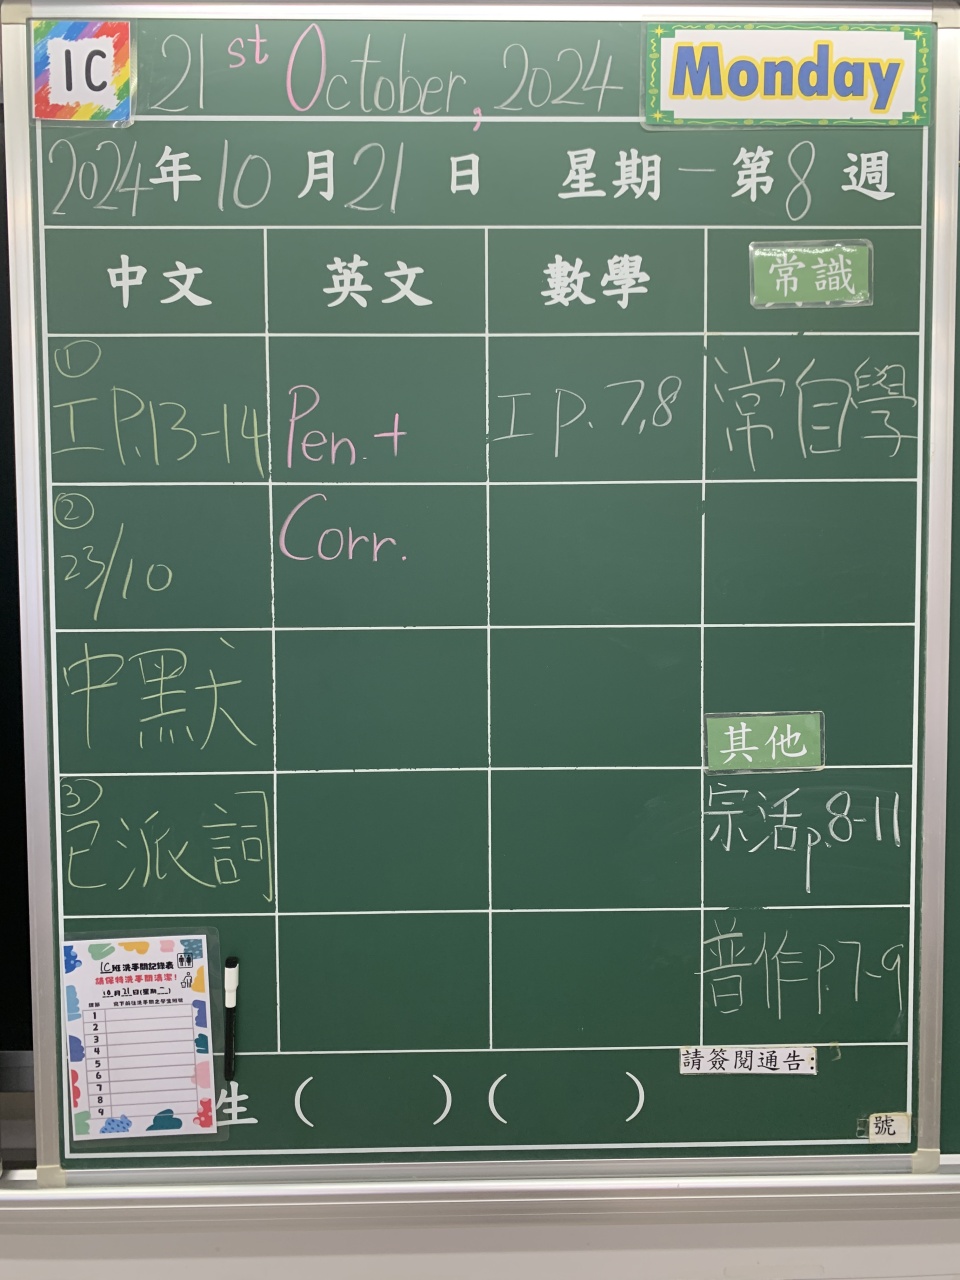 1C 21st October, 2024 Monday
2024年10月21日 星期一 第8週
中文 英文 數學 常識
①
工P.13-14 Pen. + 工P.7,8 常自學
②
23/10 Corr.
中默
其他
③
已派詞 宗活p.8-11
普作P.7-9
1C班洗手間記錄表
請保持洗手間清潔!
10月21日(星期一)
1
2
3
4
5
6
7
8
9
請簽閱通告:
生 ( ) ( )
號